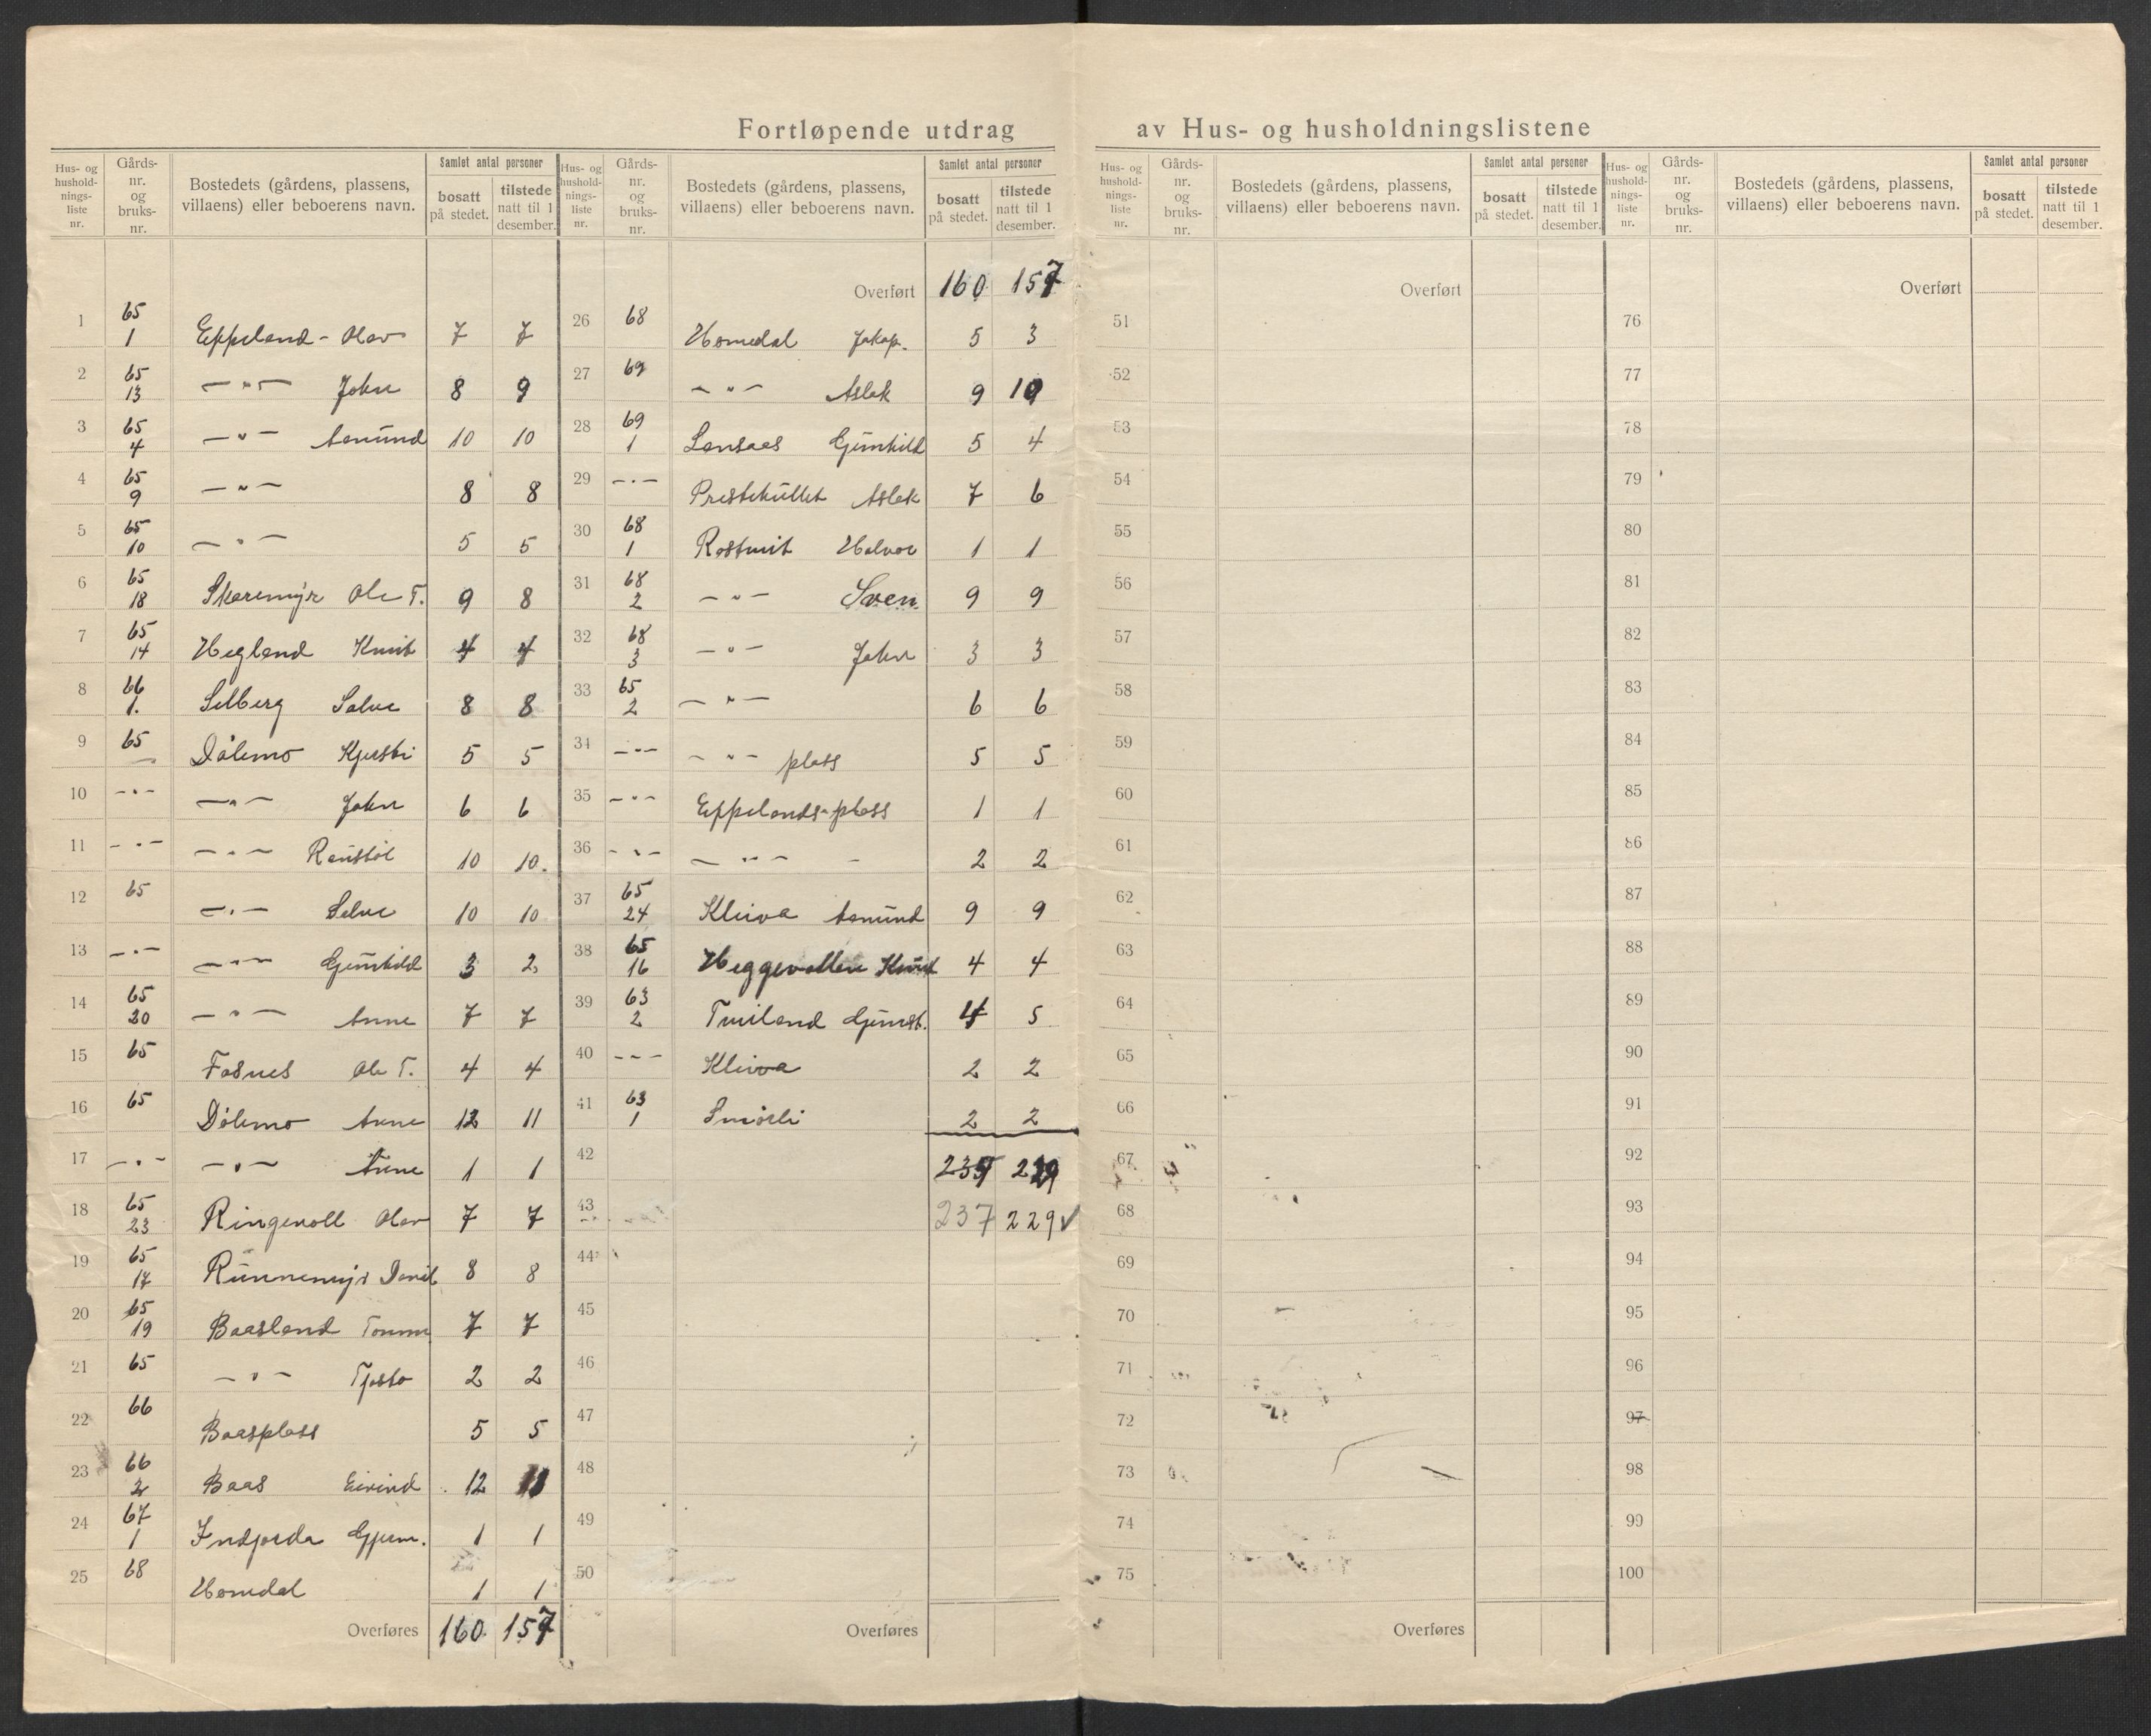 Fortløpende utdrag av Hus- og husholdningslistene
Hus- og hushold-nings-liste nr. | Gårds-nr. og bruks-nr. | Bostedets (gårdens, plassens, villaens) eller beboerens navn. | Samlet antal personer | bosatt på stedet. | tilstede natt til 1 desember.
1 65 1 Eppeland - Olav 7 7
2 65 13 — " — John 8 9
3 65 4 — " — Asmund 10 10
4 65 9 — " — 8 8
5 65 10 — " — 5 5
6 65 18 Skaremyr Ole T. 9 8
7 65 14 Hegland Knut 4 4
8 66 1. Selberg Salve 8 8
9 65 Dålemo Kjersti 5 5
10 — " — — " — John 6 6
11 — " — — " — Raustøl 10 10.
12 65 — " — Salve 10 10
13 — " — — " — Gunhild 3 2
14 65 20 — " — Anne 7 7
15 65 Fosnes Ole T. 4 4
16 65 Dålemo Anne 12 11
17 — " — — " — Anne 1 1
18 65 23 Ringevoll Olav 7 7
19 65 17 Runnemyr Daniel 8 8
20 65 19 Baasland Tomm 7 7
21 65 — " — Tjøsto 2 2
22 66 Baasplass 5 5
23 66 2 Baas Eivind 12 11
24 67 1 Indjorda Gjerm. 1 1
25 68 Homdal 1 1
Overføres 160 157
Hus- og hushold-nings-liste nr. | Gårds-nr. og bruks-nr. | Bostedets (gårdens, plassens, villaens) eller beboerens navn. | Samlet antal personer | bosatt på stedet. | tilstede natt til 1 desember.
Overført 160 157
26 68 Homedal Jakop. 5 3
27 69 — " — Aslak 9 10
28 69 1 Lansaas Gunhild 5 4
29 — " — Prestekullet Aslak 7 6
30 68 1 Rostveit Halvor 1 1
31 68 2 — " — Sven 9 9
32 68 3 — " — John 3 3
33 65 2 — " — 6 6
34 — " — — " — plass 5 5
35 — " — Eppelands-plass 1 1
36 — " — — " — - 2 2
37 65 24 Kleiva Asmund 9 9
38 65 16 Heggevollen Knut 4 4
39 63 2 Tveiland Gunst. 4 5
40 — — — Kleiva 2 2
41 63 1 Smørli 2 2
42 237 229
43 237 229 ✓
44
45
46
47
48
49
50
Overføres
Hus- og hushold-nings-liste nr. | Gårds-nr. og bruks-nr. | Bostedets (gårdens, plassens, villaens) eller beboerens navn. | Samlet antal personer | bosatt på stedet. | tilstede natt til 1 desember.
Overført
51
52
53
54
55
56
57
58
59
60
61
62
63
64
65
66
67
68
69
70
71
72
73
74
75
Overføres
Hus- og hushold-nings-liste nr. | Gårds-nr. og bruks-nr. | Bostedets (gårdens, plassens, villaens) eller beboerens navn. | Samlet antal personer | bosatt på stedet. | tilstede natt til 1 desember.
Overført
76
77
78
79
80
81
82
83
84
85
86
87
88
89
90
91
92
93
94
95
96
97
98
99
100